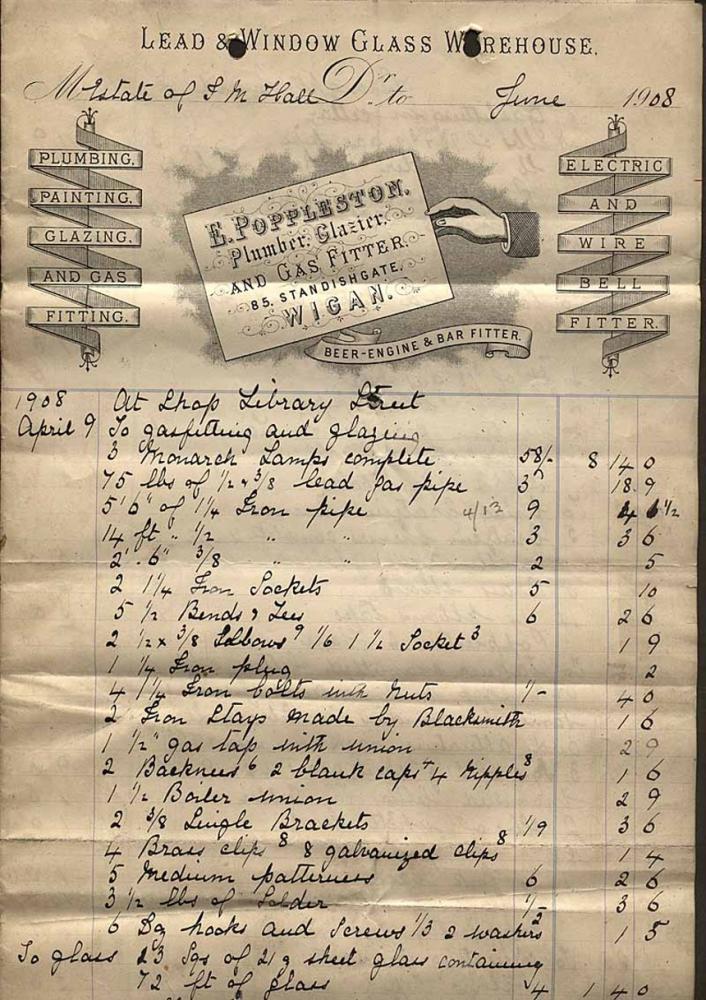 LEAD & WINDOW GLASS WAREHOUSE.
M Estate of J M Hall Dr. to June 1908
PLUMBING,
PAINTING,
GLAZING,
AND GAS
FITTING.
E. POPPLESTON.
Plumber, Glazier,
AND GAS FITTER.
85, STANDISHGATE,
WIGAN.
BEER-ENGINE & BAR FITTER.
ELECTRIC
AND
WIRE
BELL
FITTER.
1908 At Shop Library Street
April 9 To gasfitting and glazing
3 Monarch Lamps complete 58/- 8 14 0
75 lbs of 1/2 & 3/8 lead gas pipe 3 18 9
5'6" of 1 1/4 Iron pipe 4/1 1/2 9 4 1 1/2
14 ft " 1/2 " " 3 3 6
2'.6" 3/8 " " 2 5
2 1 1/4 Iron Sockets 5 10
5 1/2 Bends & Tees 6 2 6
2 1/2 x 3/8 Elbows 9 1/6 1 1/2 Socket 3 1 9
1 1/4 Iron plug 2
4 1 1/4 Iron bolts with nuts 1/- 4 0
2 Iron Stays made by Blacksmith 1 6
1 1/2" gas tap with union 2 9
2 Backnuts 6 2 blank caps 4 4 Nipples 8 1 6
1 1/2 Boiler union 2 9
2 3/8 Single Brackets 1/9 3 6
4 Brass clips 8 8 galvanized clips 8 1 4
5 Medium patteruees 6 2 6
3 1/2 lbs of Solder 1/- 3 6
6 hooks and Screws 1/3 2 washers 2 1 5
To glass 23 Sqs of 21 g sheet glass containing
72 ft of glass 4 1 4 0